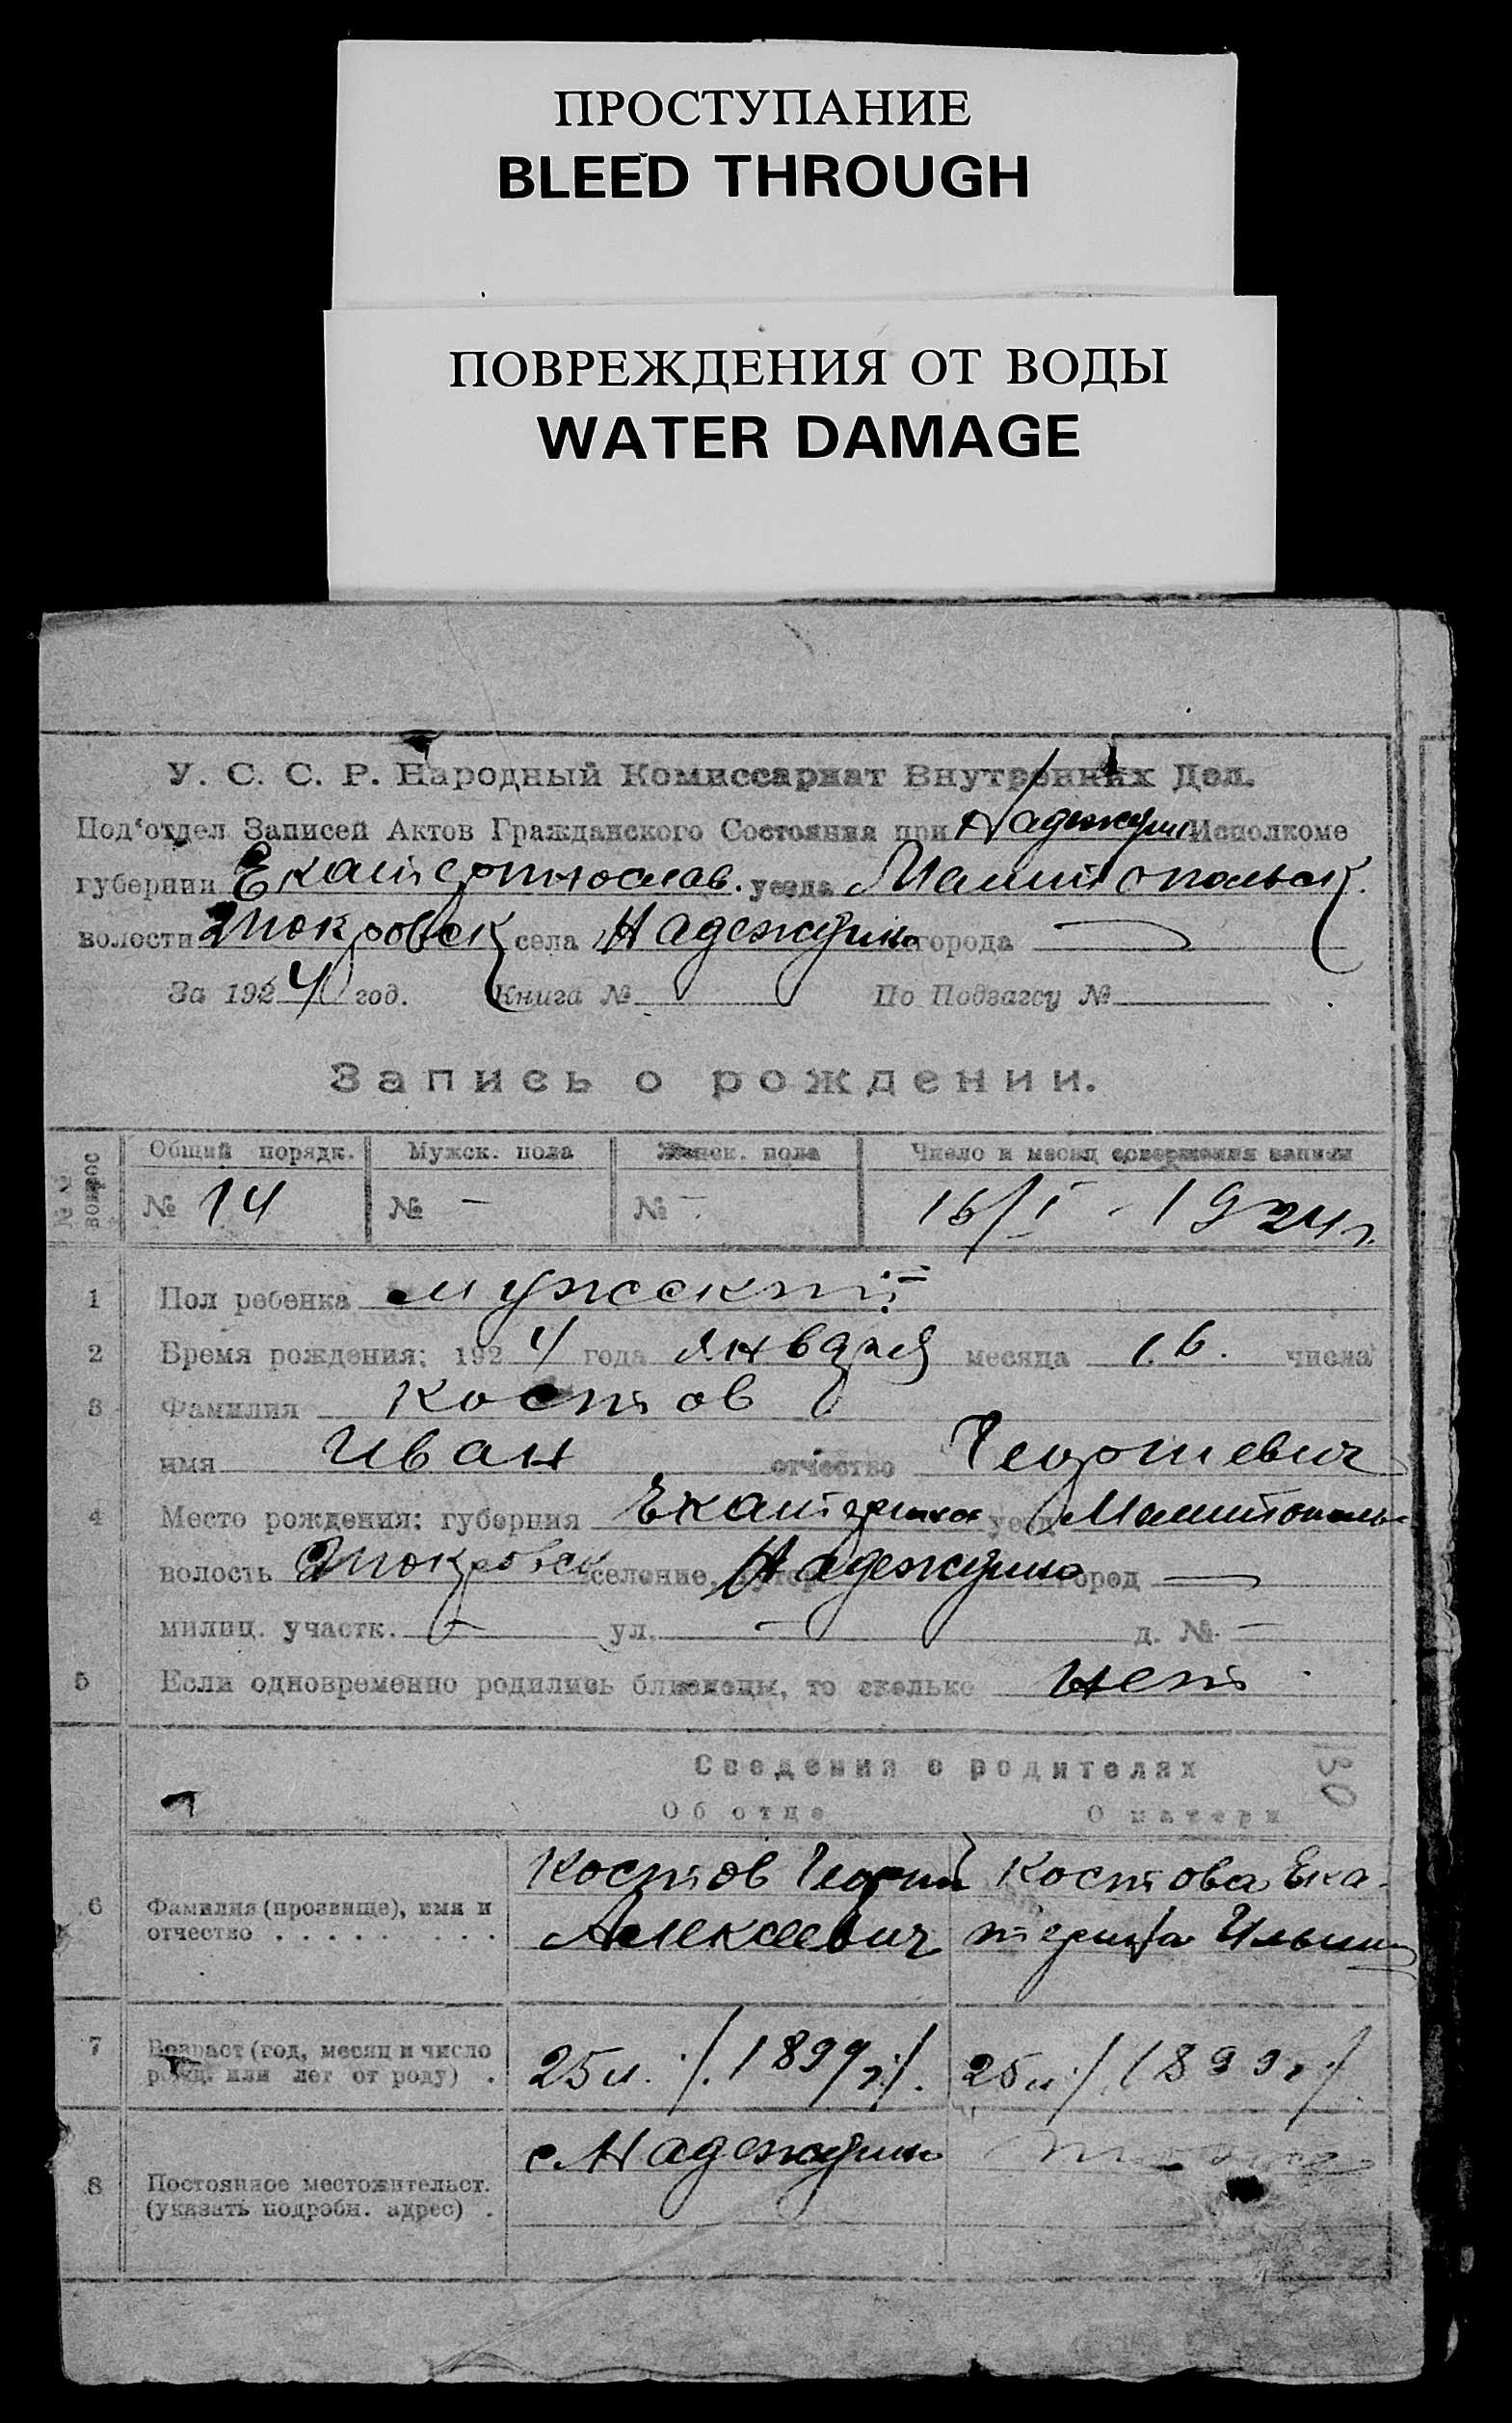 ПРОСТУПАНИЕ
BLEED THROUGH
ПОВРЕЖДЕНИЯ ОТ ВОДЫ
WATER DAMAGE
У. С. С. Р. Народный Комиссариат Внутренних Дел.
Под'отдел Записей Актов Гражданского Состояния при Надеждин Исполкоме
губернии Екатеринослав. уезда Мелитопольск.
волости Покровск села Надеждино города —
За 1924 год. Книга № По Подзагсу №
Запись о рождении.
№№ вопрос
Общий порядк. Мужск. пола Женск. пола Число и месяц совершения записи
№ 14 № - № - 16/I - 1924 г.
1 Пол ребенка мужской
2 Время рождения: 1924 года января месяца 16. числа
3 Фамилия Костов
имя Иван отчество Георгиевич
4 Место рождения: губерния Екатеринос уезд Мелитополь
волость Покровск селение, хутор Надеждино город —
милиц. участк. — ул. — д. № —
5 Если одновременно родились близнецы, то сколько нет
Сведения о родителях
130
Об отце О матери
6 Фамилия (прозвище), имя и отчество . . . . . . . . .
Костов Георгий Костова Ека-
Алексеевич терина Ильин
7 Возраст (год, месяц и число рожд. или лет от роду) .
25 л. /. 1899 г/. 25 л /. 1899 г/
8 Постоянное местожительст. (указать подробн. адрес) .
с. Надеждино тоже